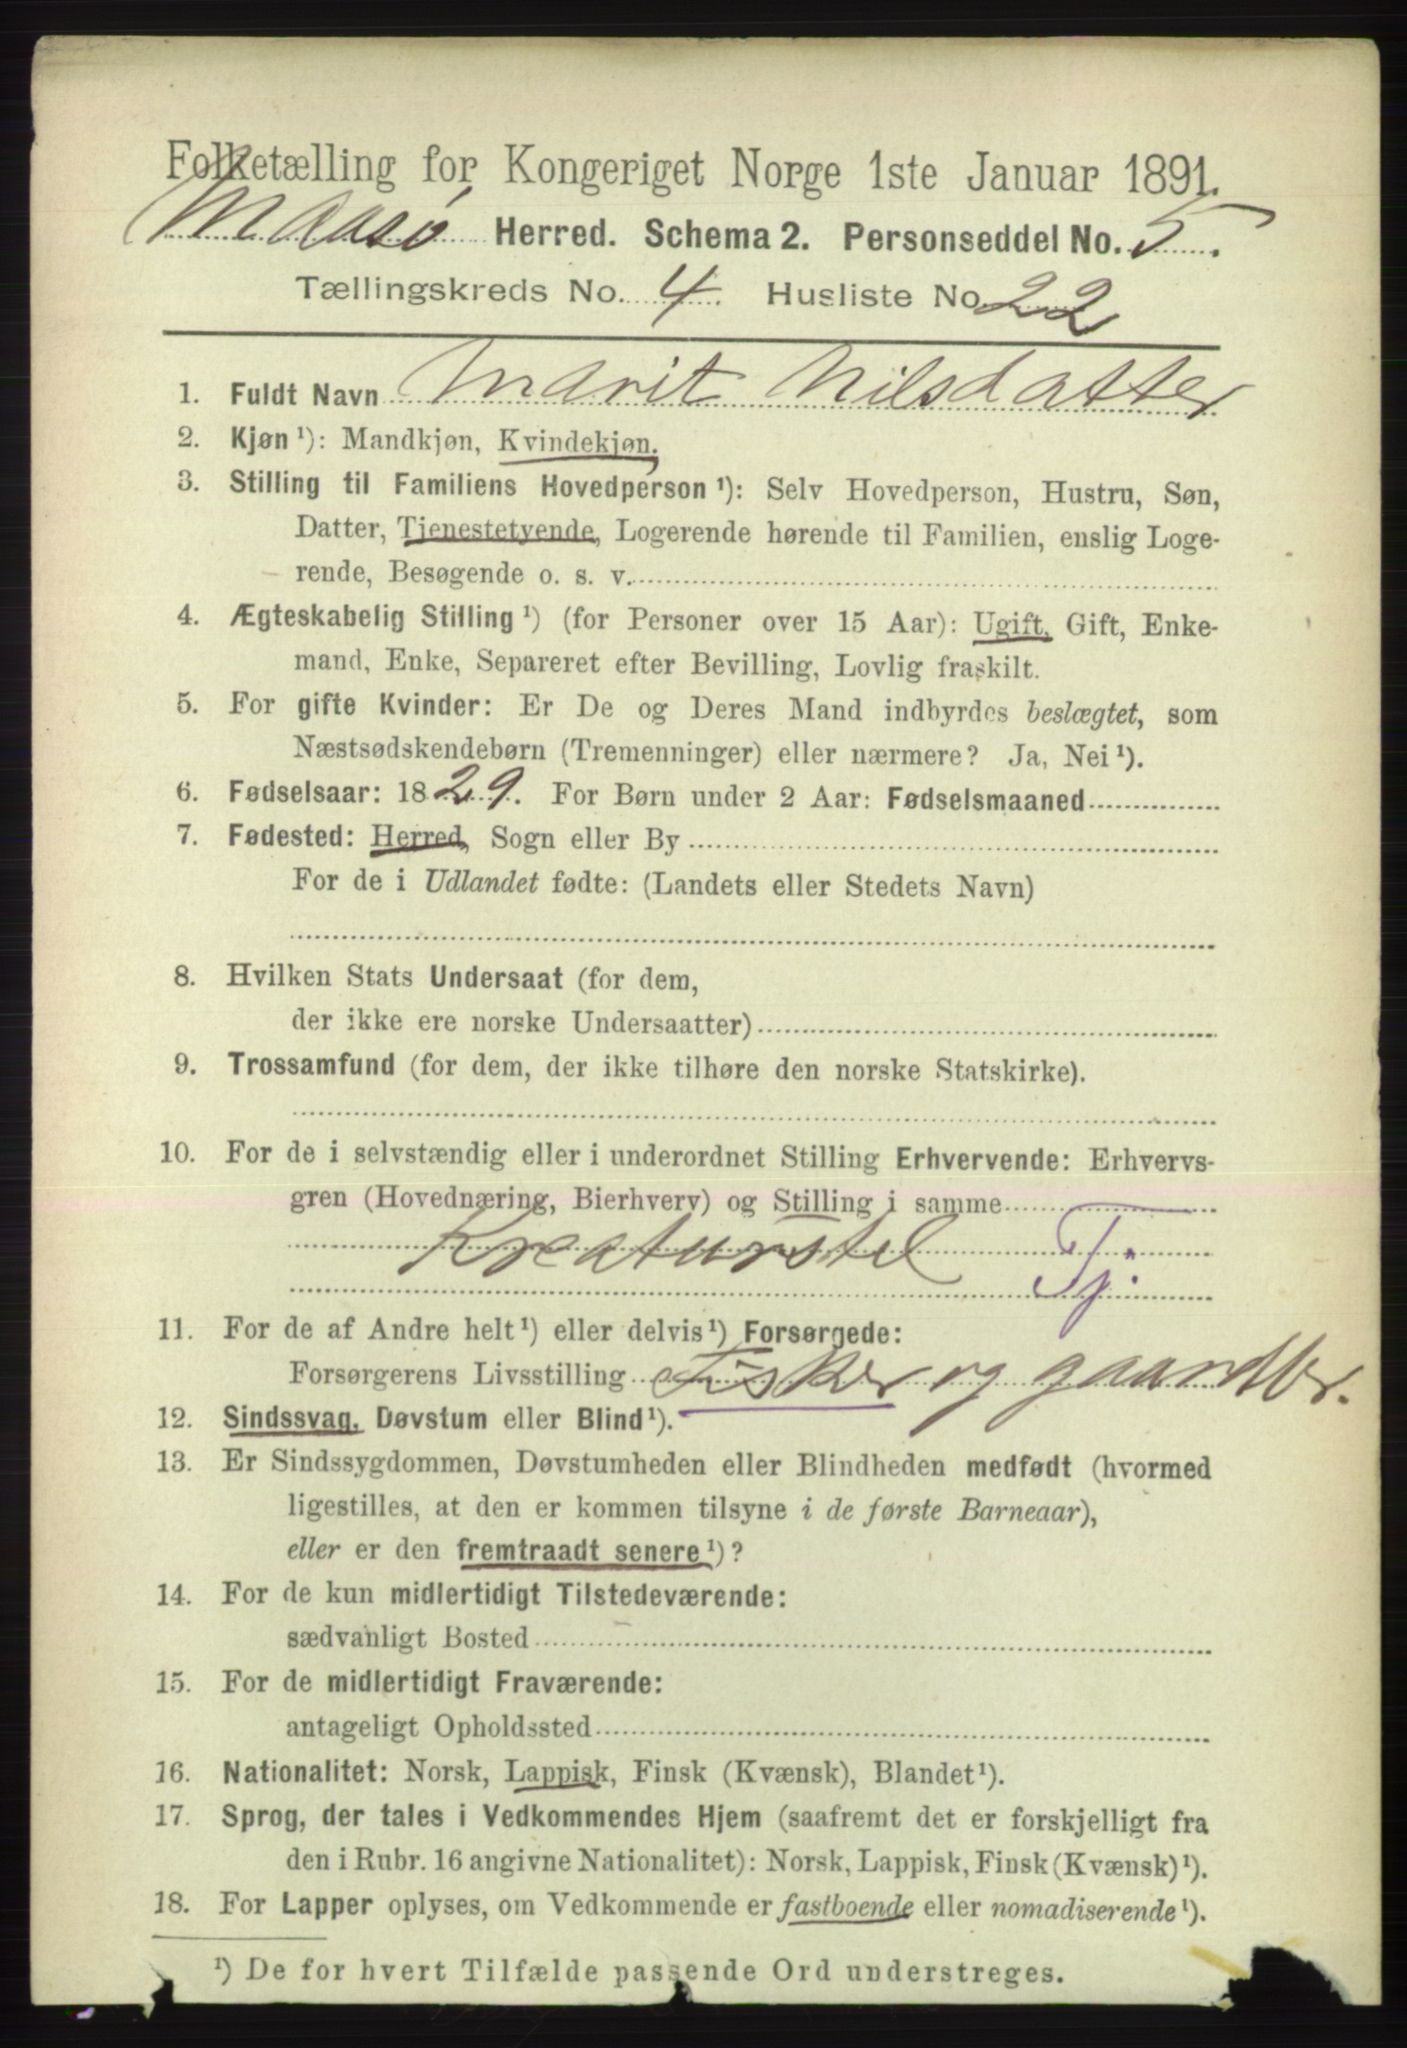 Folketælling for Kongeriget Norge 1ste Januar 1891.
Maasø Herred. Schema 2. Personseddel No. 5.
Tællingskreds No. 4. Husliste No. 22
1. Fuldt Navn Marit Nilsdatter
2. Kjøn ¹): Mandkjøn, Kvindekjøn.
3. Stilling til Familiens Hovedperson ¹): Selv Hovedperson, Hustru, Søn,
Datter, Tjenestetyende, Logerende hørende til Familien, enslig Loge-
rende, Besøgende o. s. v.
4. Ægteskabelig Stilling ¹) (for Personer over 15 Aar): Ugift, Gift, Enke-
mand, Enke, Separeret efter Bevilling, Lovlig fraskilt.
5. For gifte Kvinder: Er De og Deres Mand indbyrdes beslægtet, som
Næstsødskendebørn (Tremenninger) eller nærmere? Ja, Nei ¹).
6. Fødselsaar: 1829. For Børn under 2 Aar: Fødselsmaaned
7. Fødested: Herred, Sogn eller By
For de i Udlandet fødte: (Landets eller Stedets Navn)
8. Hvilken Stats Undersaat (for dem,
der ikke ere norske Undersaatter)
9. Trossamfund (for dem, der ikke tilhøre den norske Statskirke).
10. For de i selvstændig eller i underordnet Stilling Erhvervende: Erhvervs-
gren (Hovednæring, Bierhverv) og Stilling i samme
Kreaturstel Tj.
11. For de af Andre helt ¹) eller delvis ¹) Forsørgede:
Forsørgerens Livsstilling Fisker og gaardbr.
12. Sindssvag, Døvstum eller Blind ¹).
13. Er Sindssygdommen, Døvstumheden eller Blindheden medfødt (hvormed
ligestilles, at den er kommen tilsyne i de første Barneaar),
eller er den fremtraadt senere ¹)?
14. For de kun midlertidigt Tilstedeværende:
sædvanligt Bosted
15. For de midlertidigt Fraværende:
antageligt Opholdssted
16. Nationalitet: Norsk, Lappisk, Finsk (Kvænsk), Blandet ¹).
17. Sprog, der tales i Vedkommendes Hjem (saafremt det er forskjelligt fra
den i Rubr. 16 angivne Nationalitet): Norsk, Lappisk, Finsk (Kvænsk) ¹).
18. For Lapper oplyses, om Vedkommende er fastboende eller nomadiserende ¹).
¹) De for hvert Tilfælde passende Ord understreges.